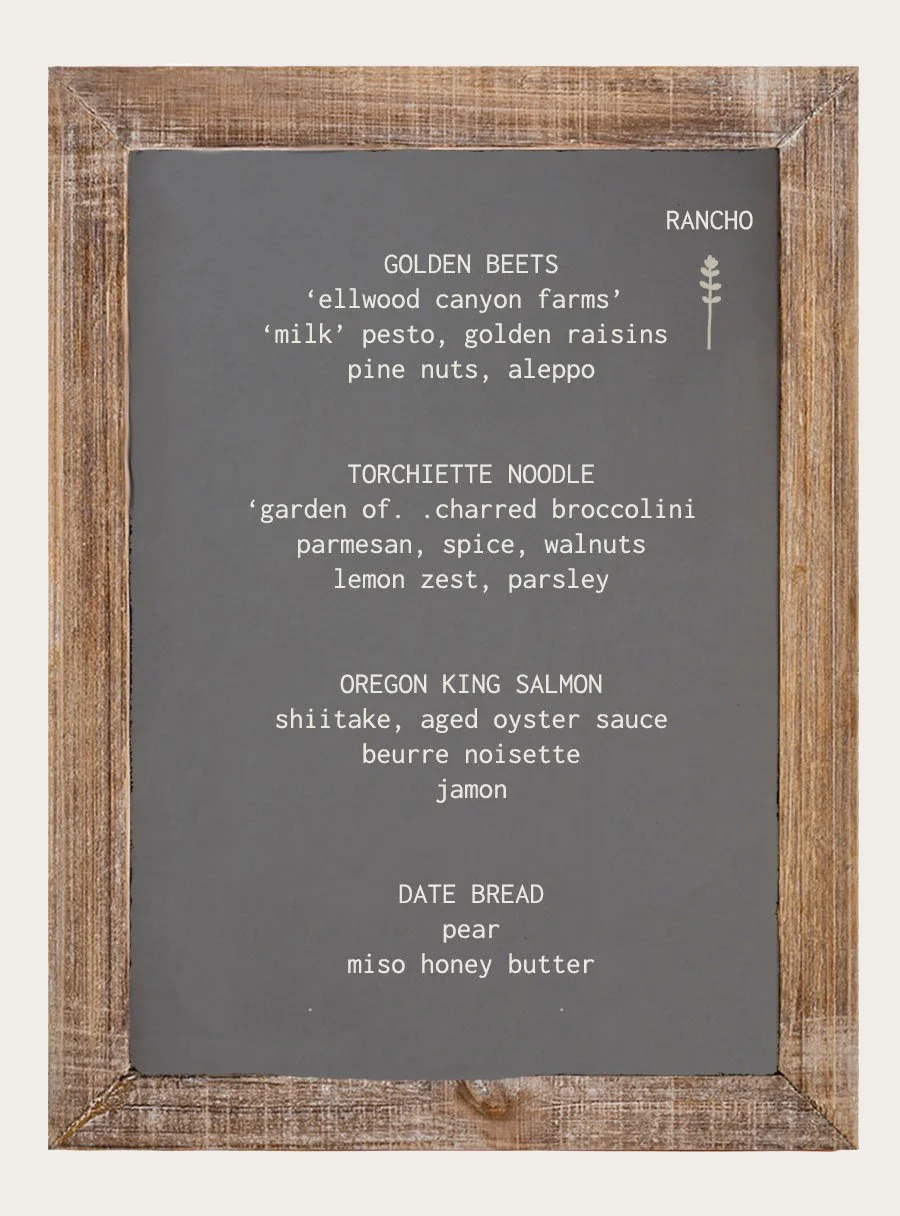 RANCHO
GOLDEN BEETS
‘ellwood canyon farms’
‘milk’ pesto, golden raisins
pine nuts, aleppo
TORCHIETTE NOODLE
‘garden of. .charred broccolini
parmesan, spice, walnuts
lemon zest, parsley
OREGON KING SALMON
shiitake, aged oyster sauce
beurre noisette
jamon
DATE BREAD
pear
miso honey butter